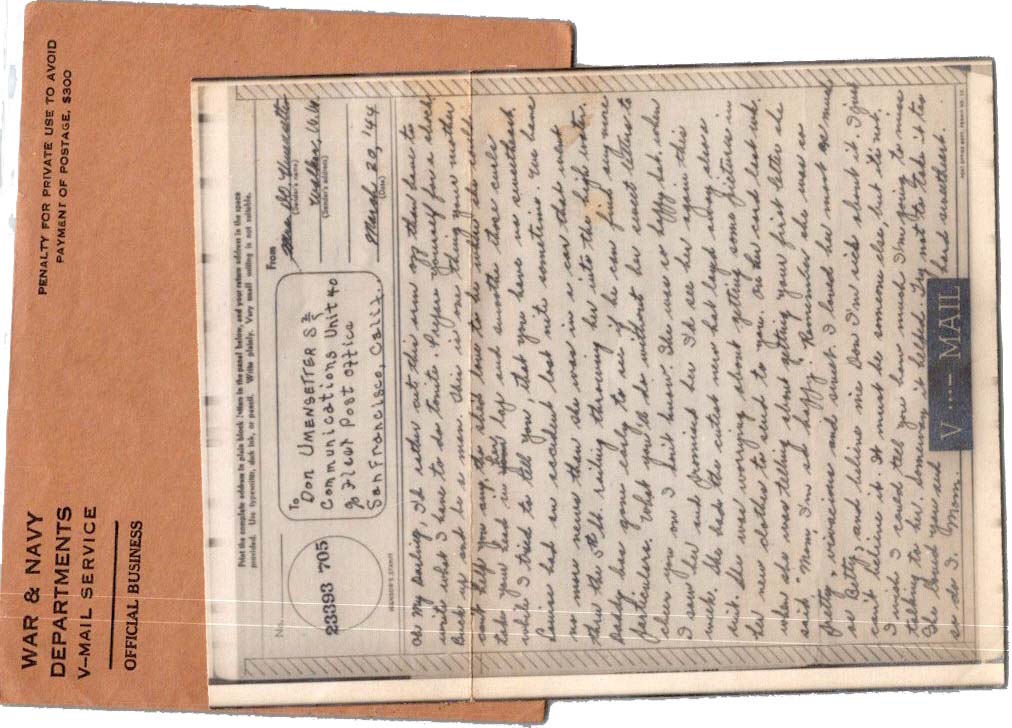 WAR & NAVY
DEPARTMENTS
V-MAIL SERVICE
OFFICIAL BUSINESS
PENALTY FOR PRIVATE USE TO AVOID
PAYMENT OF POSTAGE, $300
Print the complete address in plain block letters in the panel below, and your return address in the space
provided. Use typewriter, dark ink, or pencil. Write plainly. Very small writing is not suitable.
No.
23393 705
(CENSOR'S STAMP)
To
Don UMENSETTER S 2/c
Communications Unit 40
% Fleet Post Office
San Francisco, Calif.
From
Mrs. Umensetter
(Sender's name)
(Sender's address)
March 20, '44
(Date)
Oh My Darling, I'd rather cut this arm off than have to
write what I have to do tonite. Prepare yourself for a shock
Buck up and be a man. This is one thing your mother
can't help you any, she'd love to be where she could
take your head in her lap and smoothe those curls
while I tried to tell you that you have no sweetheart
Louise had an accident last nite sometime. We have
no more news than she was in a car that went
thru the 5th St. railing throwing her into the high water.
Daddy has gone early to see if he can find any more
particulars. What you'll do without her sweet letters to
cheer you on I don't know. She was so happy hon, when
I saw her and promised her I'd see her again this
week. She had the cutest new hat layed away also a
suit. She was worrying about getting some pictures in
her new clothes to send to you. On her card last wk.
when she was telling about getting your first letter she
said "Mom I'm so happy." Remember she was so
pretty, vivacious and sweet. I loved her most as much
as Betty, and believe me Don I'm sick about it. I just
can't believe it. It must be someone else, but its not.
I wish I could tell you how much I'm going to miss
talking to her. Someway it helped. Try not to take it to
hard sweetheart. She loved you and
so do I. Mom.
V...- MAIL